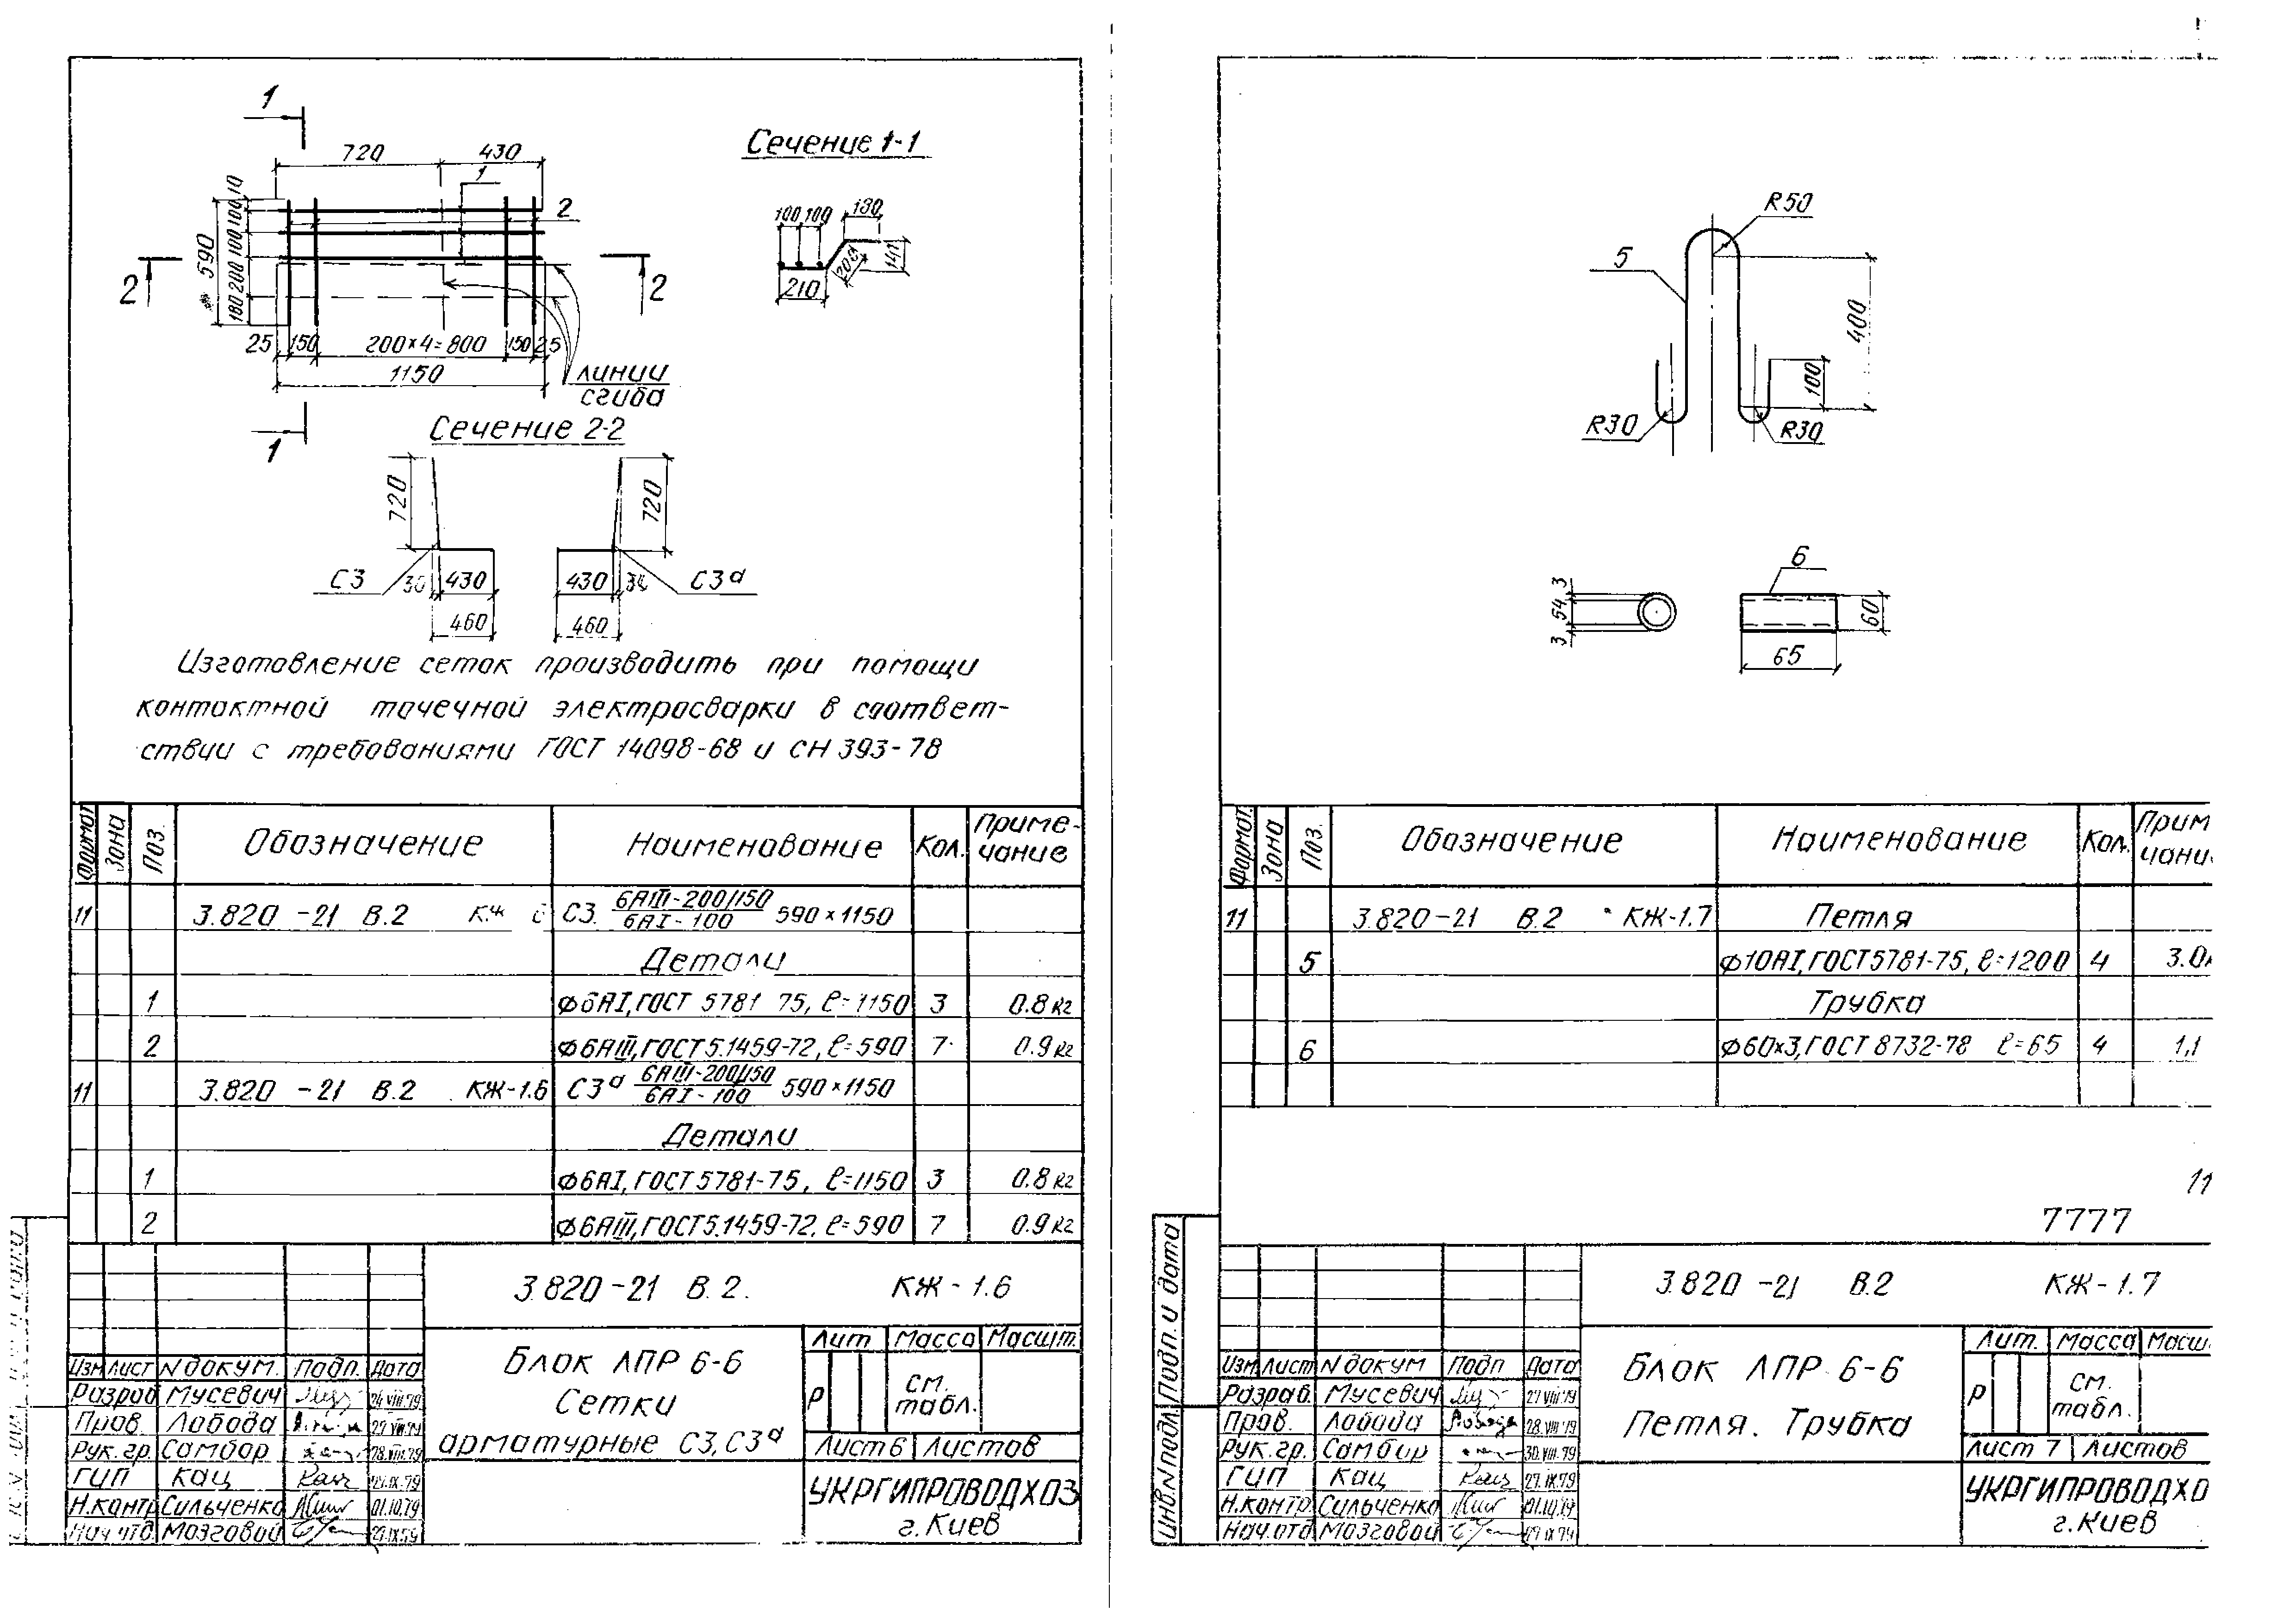 1
720
430
1
10
100
100
200
180
590
2
2
2
25
150
200×4=800
150
25
1150
линии
сгиба
1
Сечение 1-1
100
100
180
210
141
Сечение 2-2
720
720
С3
430
430
С3а
460
460
Изготовление сеток производить при помощи
контактной точечной электросварки в соответ-
ствии с требованиями ГОСТ 14098-68 и СН 393-78
Формат Зона Поз. Обозначение Наименование Кол. Приме-
чание
11 3.820-21 В.2 КЖ 6 С3. 6АIII-200/150 590×1150
6АI-100
Детали
1 ф6АI, ГОСТ 5781 75, ℓ=1150 3 0.8 кг
2 ф6АIII, ГОСТ5.1459-72, ℓ=590 7 0.9 кг
11 3.820-21 В.2 КЖ-1.6 С3а 6АIII-200/150 590×1150
6АI-100
Детали
1 ф6АI, ГОСТ5781-75, ℓ=1150 3 0.8 кг
2 ф6АIII, ГОСТ5.1459-72, ℓ=590 7 0.9 кг
3.820-21 В.2. КЖ-1.6
Блок ЛПР 6-6
Сетки
арматурные С3, С3а
Лит Масса Масшт.
Р см.
табл.
Лист 6 Листов
УКРГИПРОВОДХОЗ
г. Киев
Изм Лист N докум. Подп. Дата
Разраб Мусевич
Пров. Лобода
Рук. гр. Самбор
ГИП Кац
Н.контр Сильченко 01.10.79
Нач отд. Мозговой
R50
5
400
100
R30
R30
3
54
3
6
60
65
Формат. Зона Поз. Обозначение Наименование Кол. Прим
чани
11 3.820-21 В.2 КЖ-1.7 Петля
5 ф10АI, ГОСТ5781-75, ℓ=1200 4 3.0
Трубка
6 ф60×3, ГОСТ 8732-78 ℓ=65 4 1,1
11
7777
Подп. и дата
Инв.N подл.
3.820-21 В.2 КЖ-1.7
Блок ЛПР 6-6
Петля. Трубка
Лит. Масса Масш
Р см.
табл.
Лист 7 Листов
УКРГИПРОВОДХО
г. Киев
Изм Лист N докум Подп Дата
Разраб. Мусевич 27.VIII.79
Пров. Лобода 28.VIII.79
Рук.гр. Самбор 30.VIII.79
ГИП Кац 27.IX.79
Н.контр. Сильченко 01.10.79
Нач.отд Мозговой